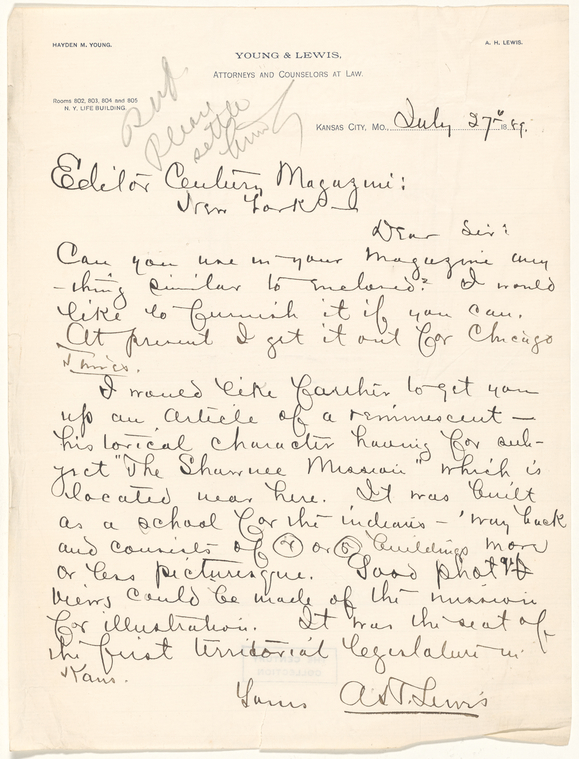 HAYDEN M. YOUNG.
A. H. LEWIS.
YOUNG & LEWIS,
ATTORNEYS AND COUNSELORS AT LAW.
Rooms 802, 803, 804 and 805
N. Y. LIFE BUILDING.
Please
settle
KANSAS CITY, MO. July 27" 1889.
Editor Century Magazine:
New York
Dear Sir:
Can you use in your Magazine any
-thing similar to enclosed? I would
like to furnish it if you can.
At present I get it out for Chicago
Times.
I would like farther to get you
up an article of a reminiscent —
historical character having for sub-
ject "The Shawnee Mission" which is
located near here. It was built
as a school for the indians - 'way back
and consists of or buildings more
or less picturesque. Good
views could be made of the mission
for illustration. It was the seat of
the first territorial legislature in
Kans.
Yours Lewis